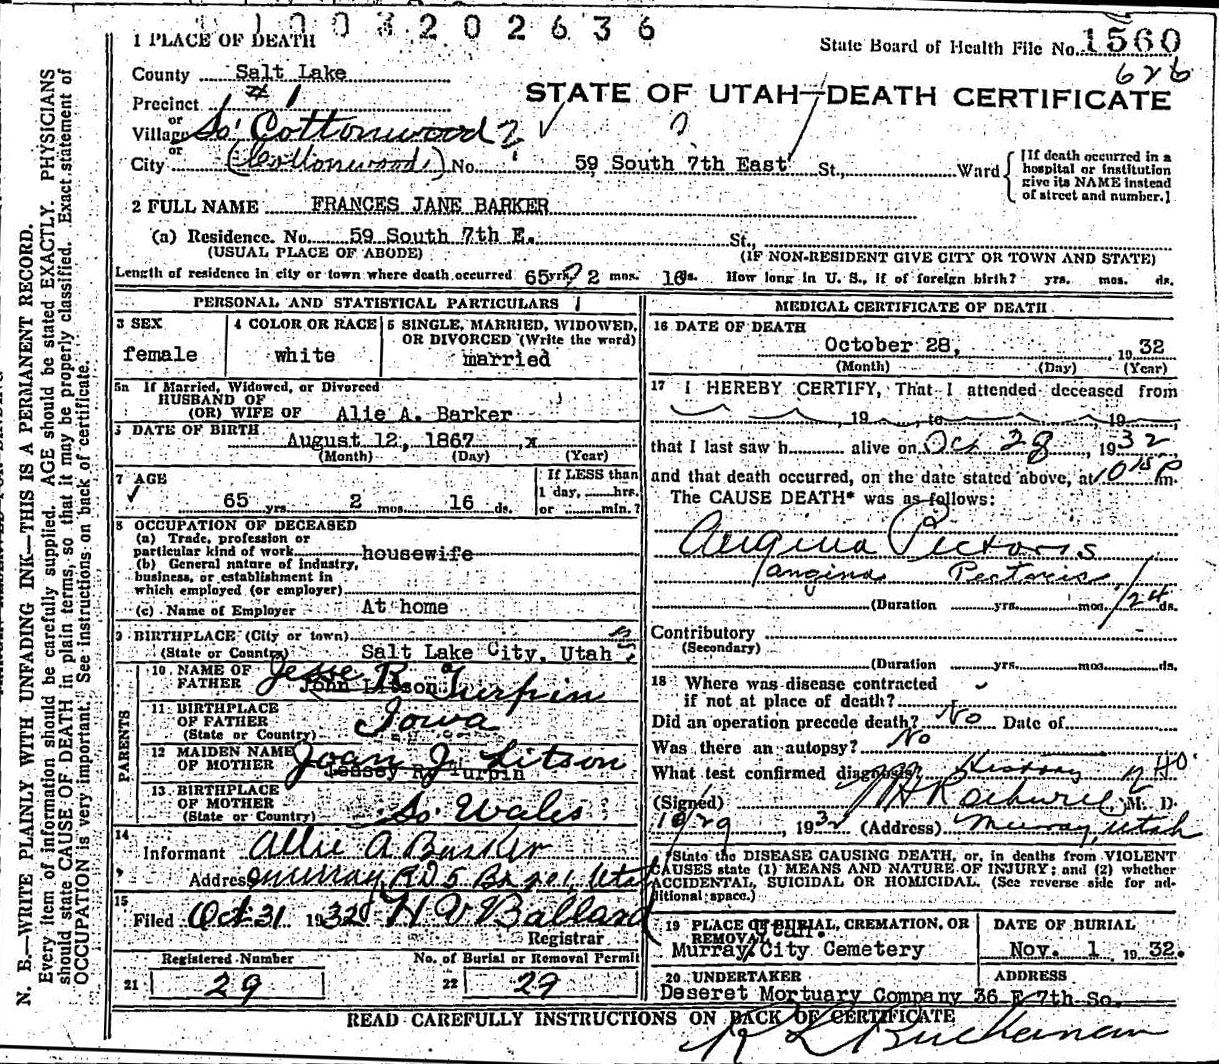 1003202636
1 PLACE OF DEATH
State Board of Health File No. 1560
626
County Salt Lake
STATE OF UTAH—DEATH CERTIFICATE
Precinct #1
or
Village So. Cottonwood ?
?
or
City (Cottonwood.) No. 59 South 7th East St., Ward
[If death occurred in a hospital or institution give its NAME instead of street and number.]
2 FULL NAME FRANCES JANE BARKER
(a) Residence. No. 59 South 7th E. St.,
(USUAL PLACE OF ABODE) (IF NON-RESIDENT GIVE CITY OR TOWN AND STATE)
Length of residence in city or town where death occurred 65 yrs. ? 2 mos. 16 ds. How long in U. S., if of foreign birth? yrs. mos. ds.
PERSONAL AND STATISTICAL PARTICULARS
3 SEX
female
4 COLOR OR RACE
white
5 SINGLE, MARRIED, WIDOWED, OR DIVORCED (Write the word)
married
5a If Married, Widowed, or Divorced
HUSBAND OF
(OR) WIFE OF Alie A. Barker
DATE OF BIRTH
August 12, 1867 x
(Month) (Day) (Year)
7 AGE
65 yrs. 2 mos. 16 ds.
If LESS than
1 day, hrs.
or min.?
8 OCCUPATION OF DECEASED
(a) Trade, profession or
particular kind of work housewife
(b) General nature of industry,
business, or establishment in
which employed (or employer)
(c) Name of Employer At home
9 BIRTHPLACE (City or town)
(State or Country) Salt Lake City, Utah
PARENTS
10 NAME OF
FATHER Jesse R. Turpin
John Litson
11 BIRTHPLACE
OF FATHER Iowa
(State or Country)
12 MAIDEN NAME
OF MOTHER Joan J Litson
Jessey R. Turpin
13 BIRTHPLACE
OF MOTHER
(State or Country) So. Wales
14
Informant Allie A Barker
Address Murray, R.D. 5 Utah
15
Filed Oct 31 1932 H V Ballard
Registrar
Registered Number
21 29
No. of Burial or Removal Permit
22 29
MEDICAL CERTIFICATE OF DEATH
16 DATE OF DEATH
October 28, 1932
(Month) (Day) (Year)
17 I HEREBY CERTIFY, That I attended deceased from
, 19 , to , 19 ,
that I last saw h alive on Oct 28, 1932
and that death occurred, on the date stated above, at 10 15 P m.
The CAUSE DEATH* was as follows:
Angina Pectoris
(angina Pectoris
(Duration yrs. mos. 1/24 ds.
Contributory
(Secondary)
(Duration yrs. mos. ds.
18 Where was disease contracted
if not at place of death?
Did an operation precede death? No Date of
Was there an autopsy? No
What test confirmed diagnosis? History
(Signed) M. D.
10/29, 1932 (Address) Murray, Utah
*State the DISEASE CAUSING DEATH, or, in deaths from VIOLENT
CAUSES state (1) MEANS AND NATURE OF INJURY; and (2) whether
ACCIDENTAL, SUICIDAL OR HOMICIDAL. (See reverse side for additional space.)
19 PLACE OF BURIAL, CREMATION, OR
REMOVAL
Murray City Cemetery
DATE OF BURIAL
Nov. 1 1932.
20 UNDERTAKER
Deseret Mortuary Company
ADDRESS
36 E 7th So.
READ CAREFULLY INSTRUCTIONS ON BACK OF CERTIFICATE
R L Buchanan
N. B.—WRITE PLAINLY WITH UNFADING INK—THIS IS A PERMANENT RECORD.
Every item of information should be carefully supplied. AGE should be stated EXACTLY. PHYSICIANS
should state CAUSE OF DEATH in plain terms, so that it may be properly classified. Exact statement of
OCCUPATION is very important. See instructions on back of certificate.